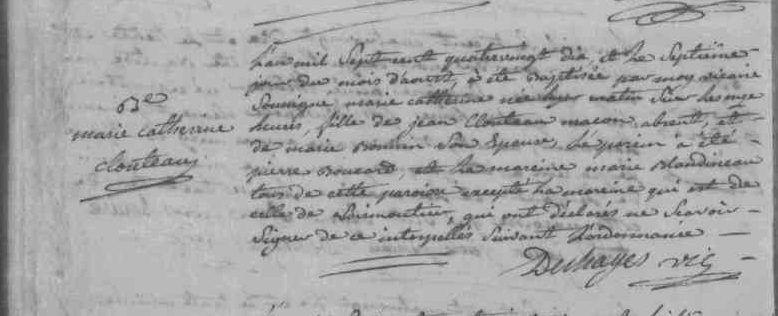 Bt
marie catherine
Clouteau
Lan mil Sept cent quatrevingt dix, et le Septième
jour du mois d'aoust, a été Baptisée par moy vicaire
Soussigné marie catherine née hier matin Sur les onze
heures, fille de jean Clouteau macon, absent, et
de marie Bonnin Son Epouse, Le parein a été
pierre Boucard, et La mareine marie Blandineau
tous de cette paroisse excepté La mareine qui est de
celle de Noirmoutier, qui ont déclarés ne Scavoir
Signer de ce interpellés Suivant Lordonnance
Deshayes vic